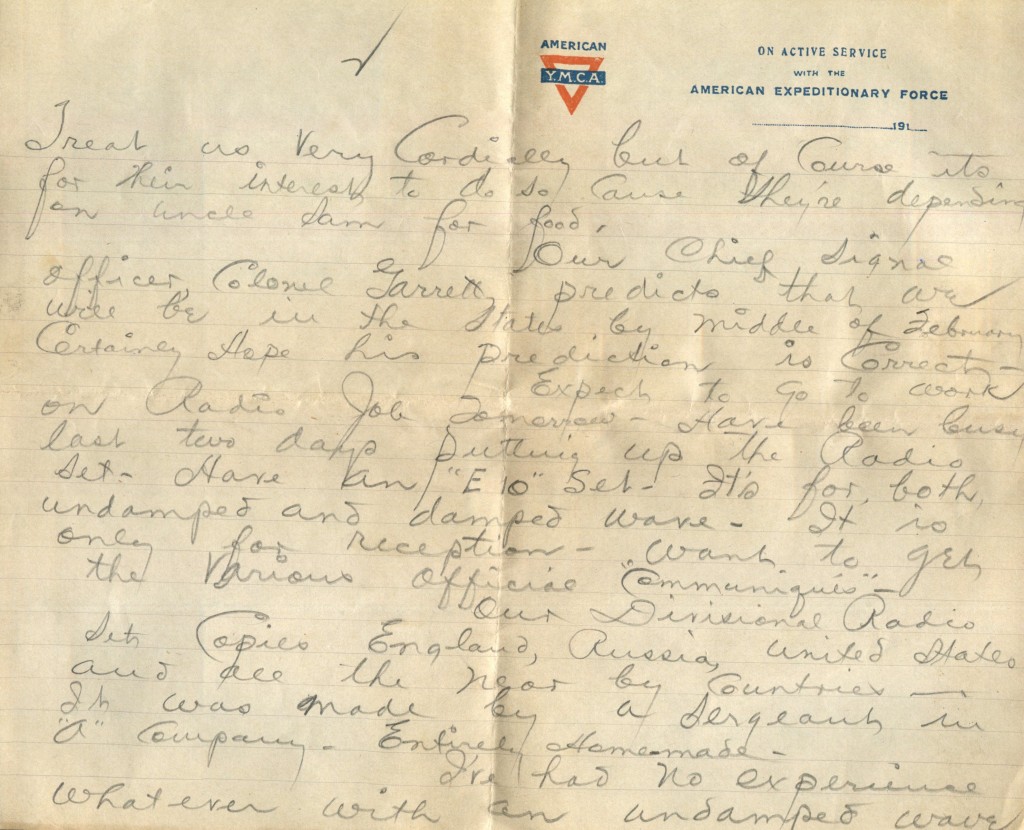 AMERICAN
Y.M.C.A.
ON ACTIVE SERVICE
WITH THE
AMERICAN EXPEDITIONARY FORCE
191
Treat us Very Cordially but of Course its
for their interest to do so cause they're depending
on uncle Sam for food.
Our Chief Signal
officer, Colonel Garrett, predicts that we
will be in the States by middle of February
Certainly Hope his prediction is Correct -
Expect to Go To work
on Radio Job Tomorrow - Have been busy
last two days putting up the Radio
Set - Have an "E 10" Set - It's for both,
undamped and damped wave - It is
only for reception - want to get
the Various official "Communiqués" -
Our Divisional Radio
Set Copies England, Russia, United States
and all the near by Countries -
It was made by a Sergeant in
"A" Company - Entirely Home-made -
I've had no experience
whatever with an undamped wave